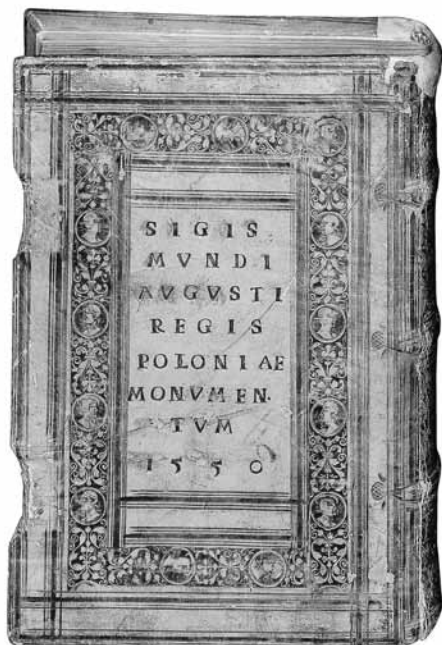 SIGIS
MVNDI
AVGVSTI
REGIS
POLONIAE
MONVMEN.
TVM
1550